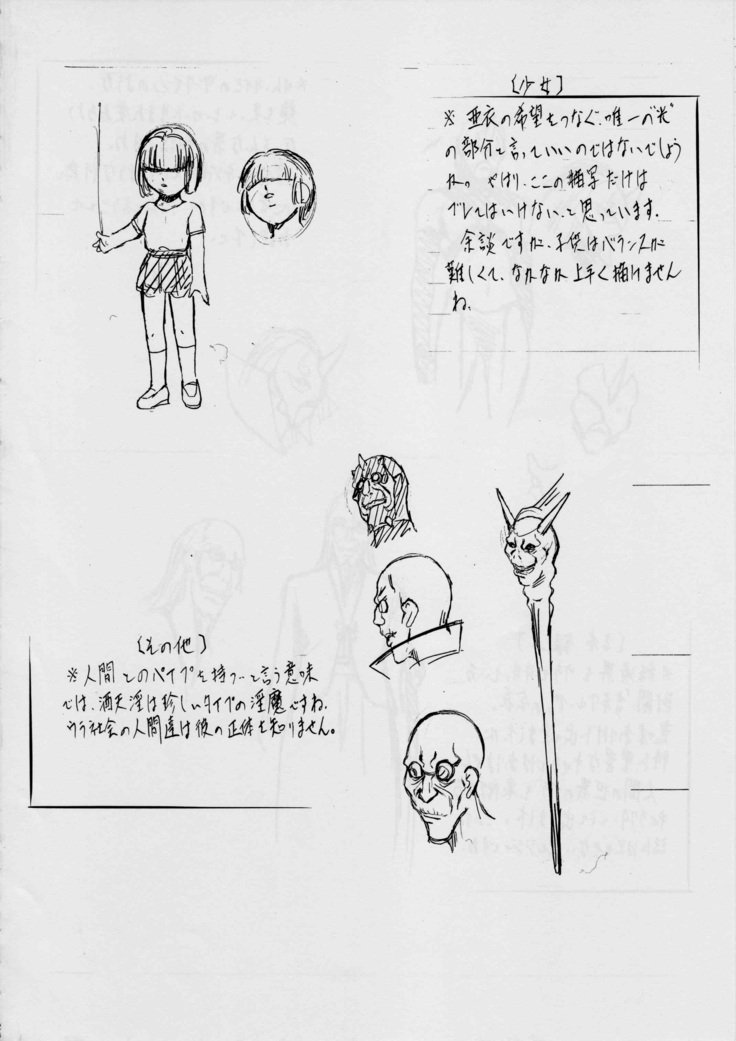 〔少女〕
※ 亜衣の希望をつなぐ、唯一の“光”
の部分と言っていいのではないでしょう
か。 やはり、ここの描写だけは
ブレてはいけない、と思っています。
余談ですが、子供はバランスが
難しくて、なかなか上手く描けません
ね。
〔その他〕
※人間とのパイプを持つ…と言う意味
では、酒天淫は珍しいタイプの淫魔ですね。
ウラ社会の人間達は彼の正体を知りません。